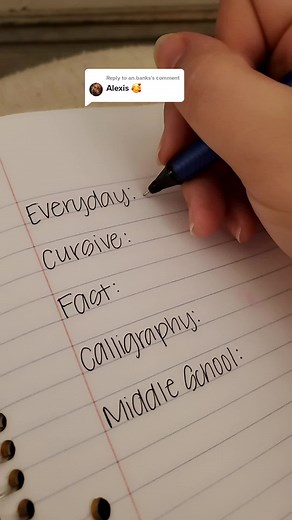 Reply to ari.banks's comment
Alexis 🥰
Everyday:
Cursive:
Fast:
Calligraphy:
Middle School: